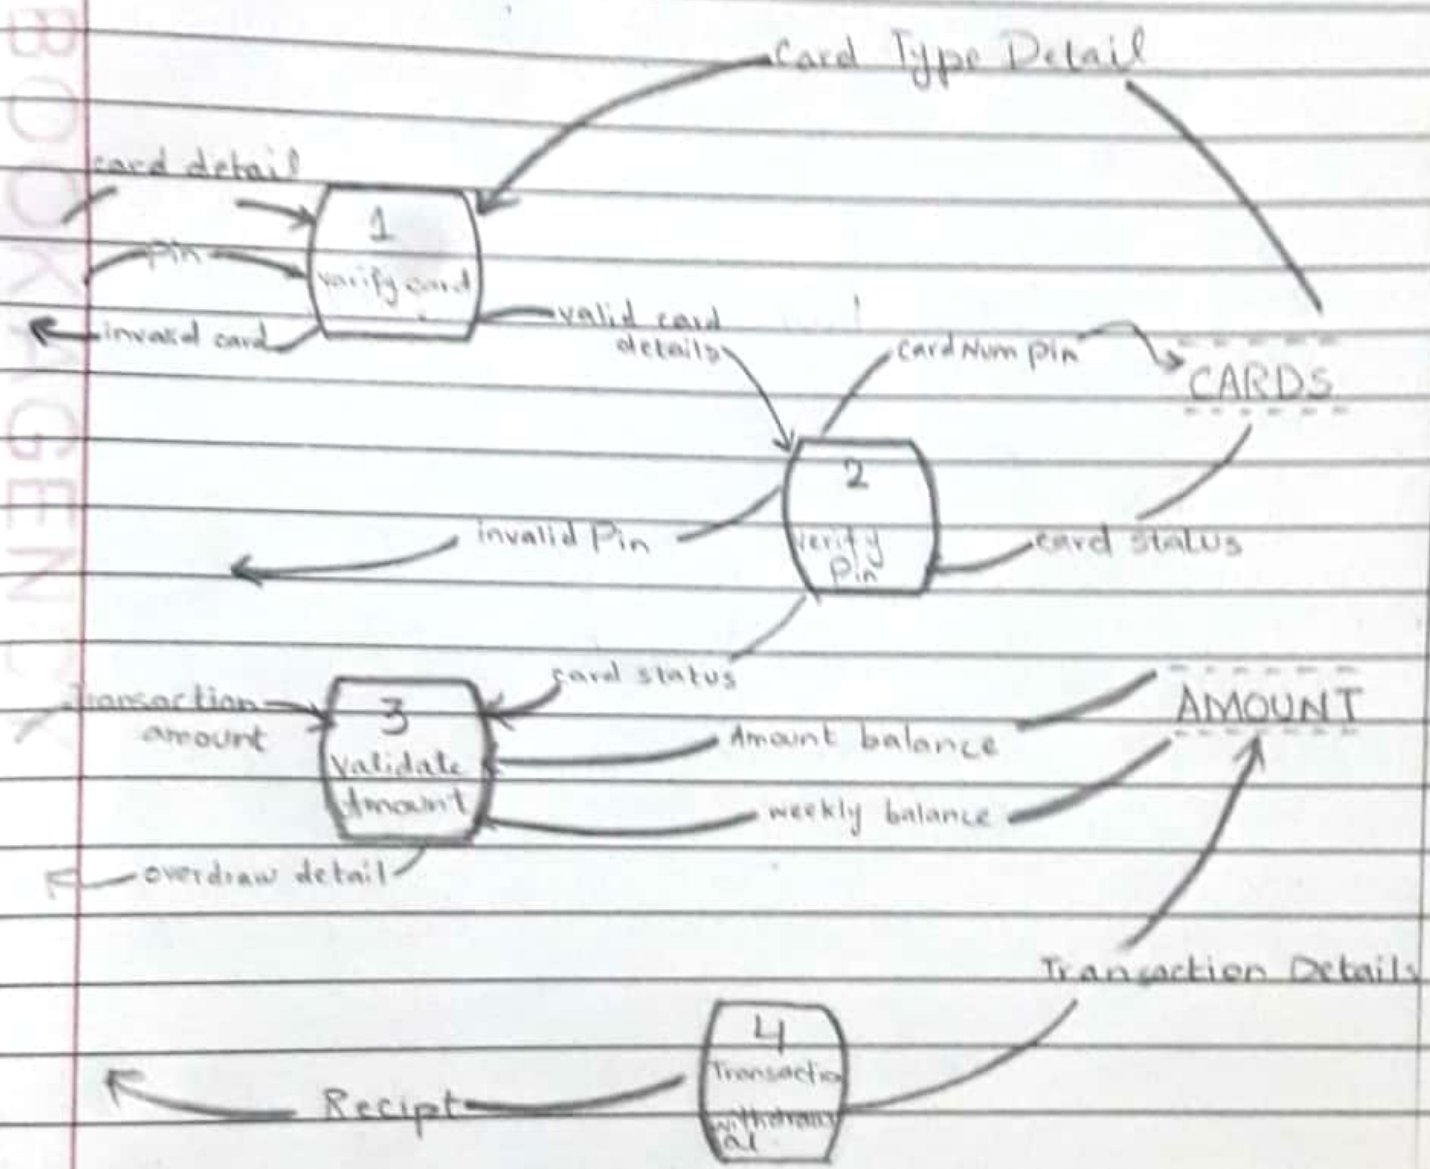 Card Type Detail
card detail
1
Pin
varify card
invalid card
valid card
details
cardNum pin
CARDS
2
invalid Pin
verify
Pin
card status
card status
Transaction
amount
3
Validate
Amount
Amount balance
AMOUNT
weekly balance
overdraw detail
Transaction Details
4
Transactio
withdraw
al
Recipt
BOOK AGENCY